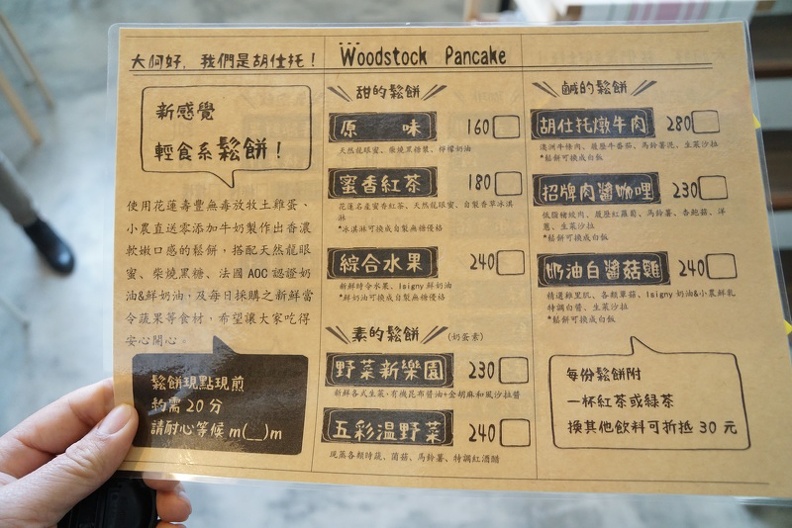 大阿好, 我們是胡仕托! Woodstock Pancake
新感覺
輕食系鬆餅!
使用花蓮壽豐無毒放牧土雞蛋、
小農直送零添加牛奶製作出香濃
軟嫩口感的鬆餅,搭配天然龍眼
蜜、柴燒黑糖、法國 AOC 認證奶
油&鮮奶油,及每日採購之新鮮當
令蔬果等食材,希望讓大家吃得
安心開心。
鬆餅現點現煎
約需 20 分
請耐心等候 m(__)m
甜的鬆餅
原 味 160
天然龍眼蜜、柴燒黑糖醬、檸檬奶油
蜜香紅茶 180
花蓮名產蜜香紅茶、天然龍眼蜜、自製香草冰淇
淋
*冰淇淋可換成自製無糖優格
綜合水果 240
新鮮時令水果、Isigny 鮮奶油
*鮮奶油可換成自製無糖優格
素的鬆餅 (奶蛋素)
野菜新樂園 230
新鮮各式生菜、有機昆布醬油+金胡麻和風沙拉醬
五彩溫野菜 240
現蒸各類時蔬、菌菇、馬鈴薯、特調紅酒醋
鹹的鬆餅
胡仕托燉牛肉 280
澳洲牛條肉、履歷牛番茄、馬鈴薯洗、生菜沙拉
*鬆餅可換成白飯
招牌肉醬咖哩 230
低脂豬絞肉、履歷紅蘿蔔、馬鈴薯、杏鮑菇、洋
蔥、生菜沙拉
*鬆餅可換成白飯
奶油白醬菇雞 240
精選雞里肌、各類草菇、Isigny 奶油&小農鮮乳
特調白醬、生菜沙拉
*鬆餅可換成白飯
每份鬆餅附
一杯紅茶或綠茶
換其他飲料可折抵 30 元